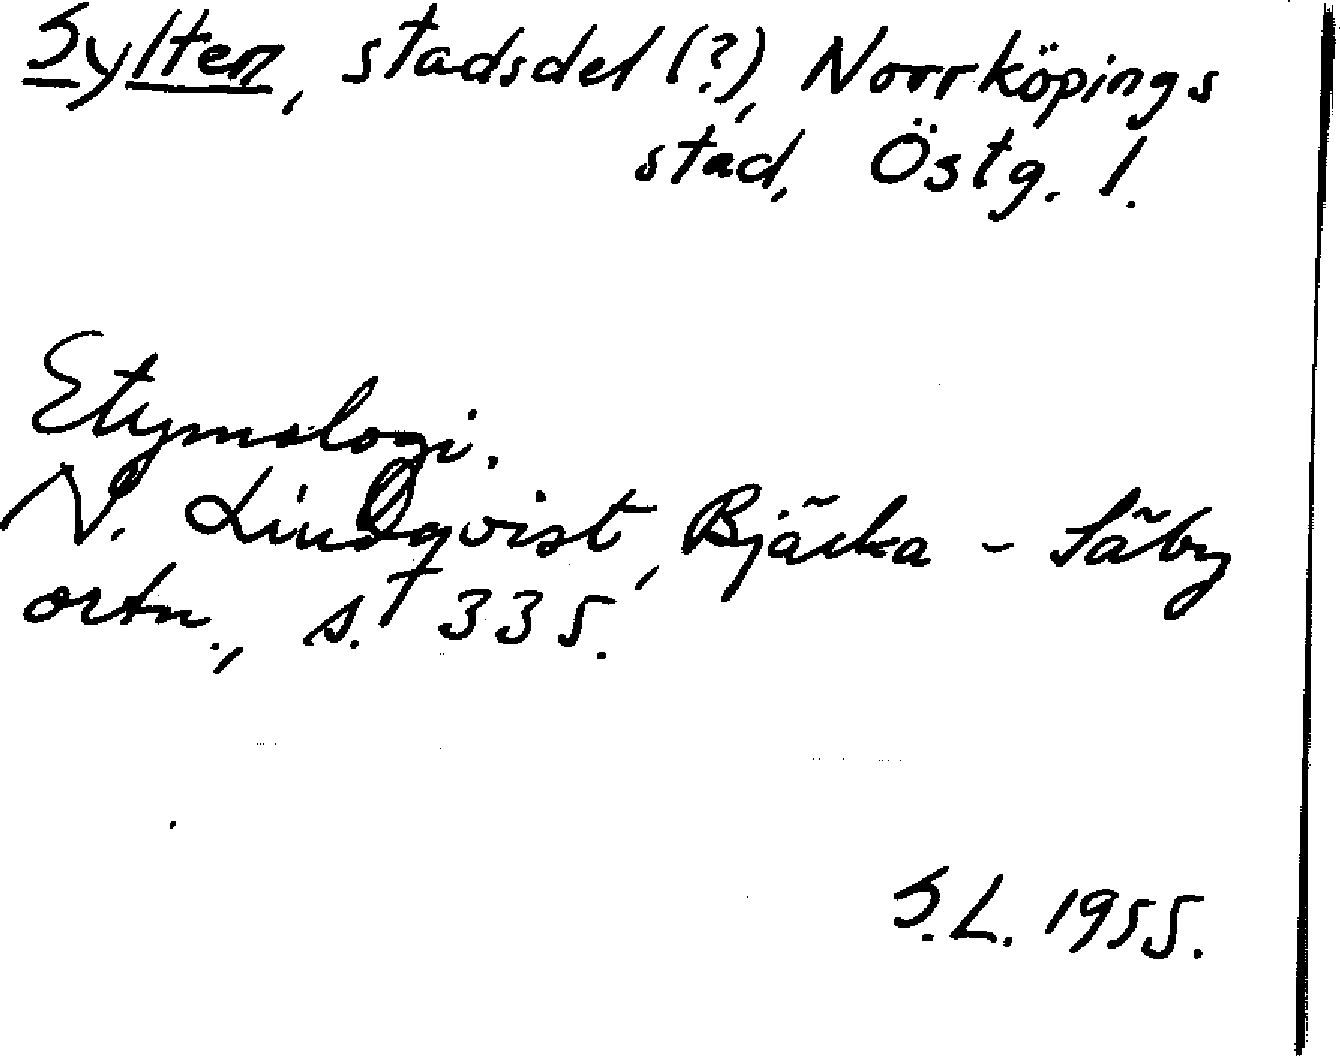 Sylten, stadsdel (?), Norrköpings
stad, Östg. l.
Etymologi.
N. Lindqvist, Bjärka-Säby
ortn., s. 335.
S.L. 1955.